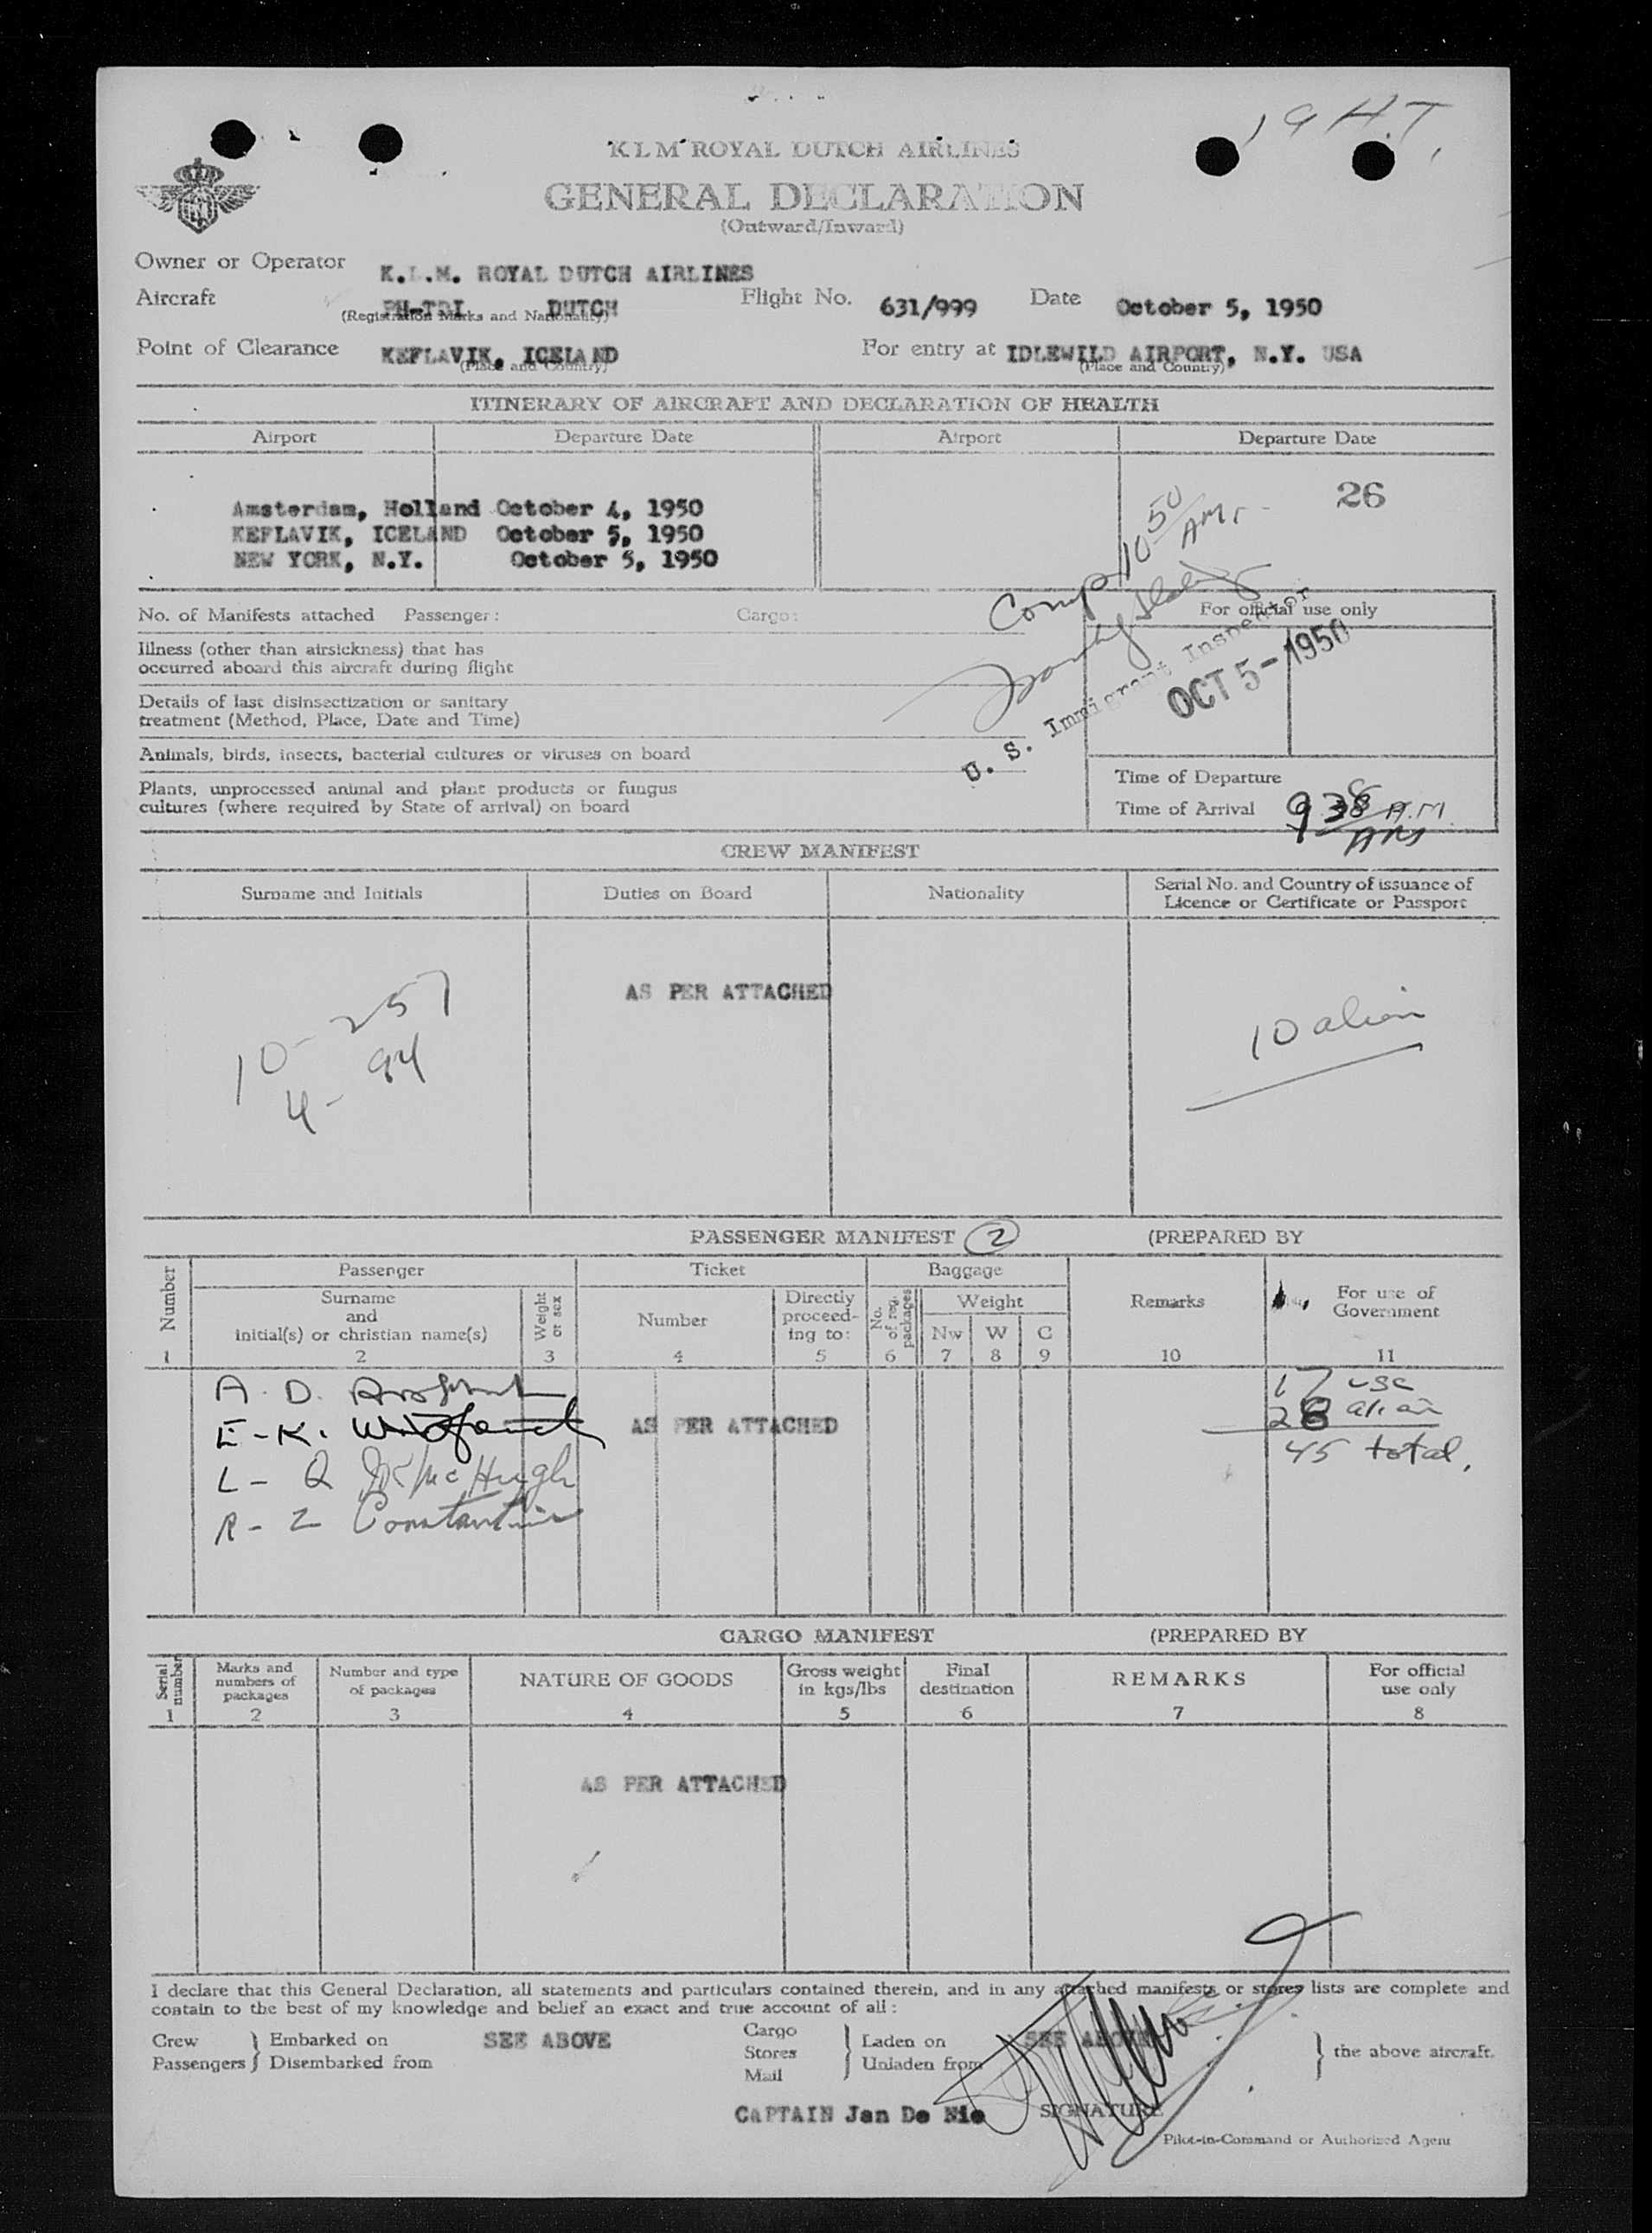 19 H.T.
KLM ROYAL DUTCH AIRLINES
GENERAL DECLARATION
(Outward/Inward)
Owner or Operator K.L.M. ROYAL DUTCH AIRLINES
Aircraft DUTCH Flight No. 631/999 Date October 5, 1950
(Registration Marks and Nationality)
Point of Clearance KEFLAVIK, ICELAND For entry at IDLEWILD AIRPORT, N.Y. USA
(Place and Country) (Place and Country)
ITINERARY OF AIRCRAFT AND DECLARATION OF HEALTH
Airport Departure Date Airport Departure Date
26
Amsterdam, Holland October 4, 1950
KEFLAVIK, ICELAND October 5, 1950
NEW YORK, N.Y. October 5, 1950
Comp. 10 50 AM
No. of Manifests attached Passenger: Cargo:
For official use only
Illness (other than airsickness) that has
occurred aboard this aircraft during flight
U. S. Immigrant Inspector
OCT 5 - 1950
Details of last disinsectization or sanitary
treatment (Method, Place, Date and Time)
Animals, birds, insects, bacterial cultures or viruses on board
Plants, unprocessed animal and plant products or fungus
cultures (where required by State of arrival) on board
Time of Departure
Time of Arrival 938 A.M.
AM
CREW MANIFEST
Surname and Initials Duties on Board Nationality Serial No. and Country of issuance of
Licence or Certificate or Passport
AS PER ATTACHED
10 - 257
4 - 94
10 alien
PASSENGER MANIFEST 2 (PREPARED BY
Number Passenger Ticket Baggage Remarks For use of
Government
Surname
and
initial(s) or christian name(s)
Weight
or sex
Number
Directly
proceed-
ing to:
No.
of reg.
packages
Weight
Nw W C
1 2 3 4 5 6 7 8 9 10 11
A. D.
E - K.
AS PER ATTACHED
L - Q McHugh
R - Z Constantine
17 usc
28 alien
45 total.
CARGO MANIFEST (PREPARED BY
Serial
number
Marks and
numbers of
packages
Number and type
of packages
NATURE OF GOODS
Gross weight
in kgs/lbs
Final
destination
REMARKS
For official
use only
1 2 3 4 5 6 7 8
AS PER ATTACHED
I declare that this General Declaration, all statements and particulars contained therein, and in any attached manifests or stores lists are complete and
contain to the best of my knowledge and belief an exact and true account of all:
Crew
Passengers
Embarked on
Disembarked from
SEE ABOVE
Cargo
Stores
Mail
Laden on
Unladen from
SEE ABOVE
the above aircraft.
CAPTAIN Jan De Nie SIGNATURE
Pilot-in-Command or Authorized Agent